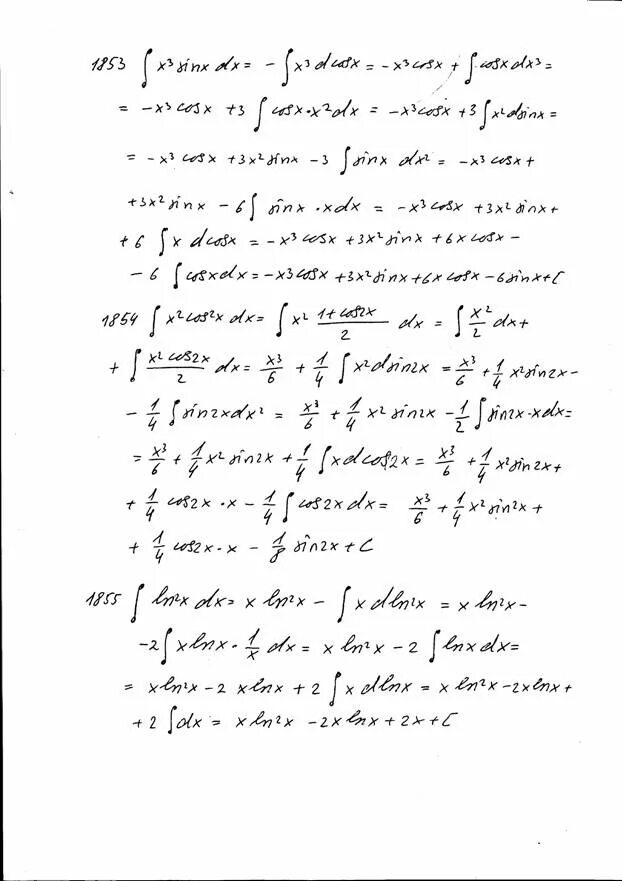 1853 ∫ x³ sinx dx = - ∫ x³ d cosx = -x³ cosx + ∫ cosx dx³ =
= -x³ cosx + 3 ∫ cosx · x² dx = -x³ cosx + 3 ∫ x² d sinx =
= -x³ cosx + 3x² sinx - 3 ∫ sinx dx² = -x³ cosx +
+ 3x² sinx - 6 ∫ sinx · x dx = -x³ cosx + 3x² sinx +
+ 6 ∫ x d cosx = -x³ cosx + 3x² sinx + 6x cosx -
- 6 ∫ cosx dx = -x3 cosx + 3x² sinx + 6x cosx - 6 sinx + C
1854 ∫ x² cos²x dx = ∫ x² (1+cos2x)/2 dx = ∫ x²/2 dx +
+ ∫ (x² cos2x)/2 dx = x³/6 + 1/4 ∫ x² d sin2x = x³/6 + 1/4 x² sin2x -
- 1/4 ∫ sin2x dx² = x³/6 + 1/4 x² sin2x - 1/2 ∫ sin2x · x dx =
= x³/6 + 1/4 x² sin2x + 1/4 ∫ x d cos2x = x³/6 + 1/4 x² sin2x +
+ 1/4 cos2x · x - 1/4 ∫ cos2x dx = x³/6 + 1/4 x² sin2x +
+ 1/4 cos2x · x - 1/8 sin2x + C
1855 ∫ ln²x dx = x ln²x - ∫ x d ln²x = x ln²x -
- 2 ∫ x lnx · 1/x dx = x ln²x - 2 ∫ lnx dx =
= x ln²x - 2 x lnx + 2 ∫ x d lnx = x ln²x - 2x lnx +
+ 2 ∫ dx = x ln²x - 2x lnx + 2x + C